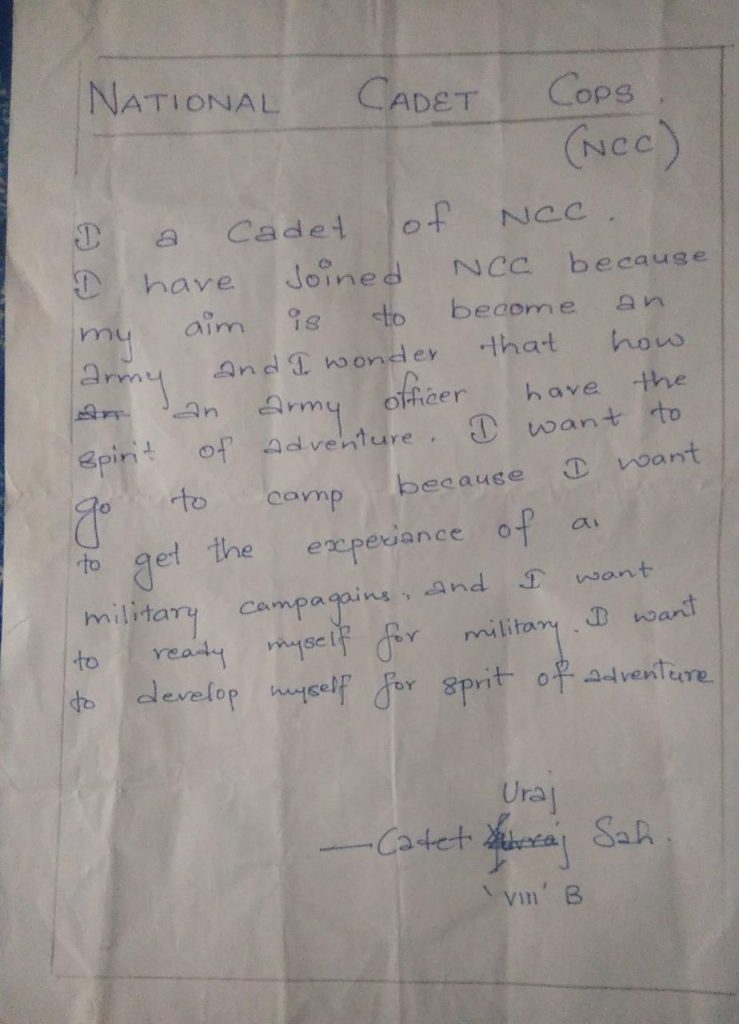 NATIONAL CADET COPS.
(NCC)
I a Cadet of NCC.
I have Joined NCC because
my aim is to become an
army and I wonder that how
an an army officer have the
spirit of adventure. I want to
go to camp because I want
to get the experiance of a
military campagains, and I want
to ready myself for military. I want
to develop myself for sprit of adventure
Uraj
— Catet Sah.
'VIII' B